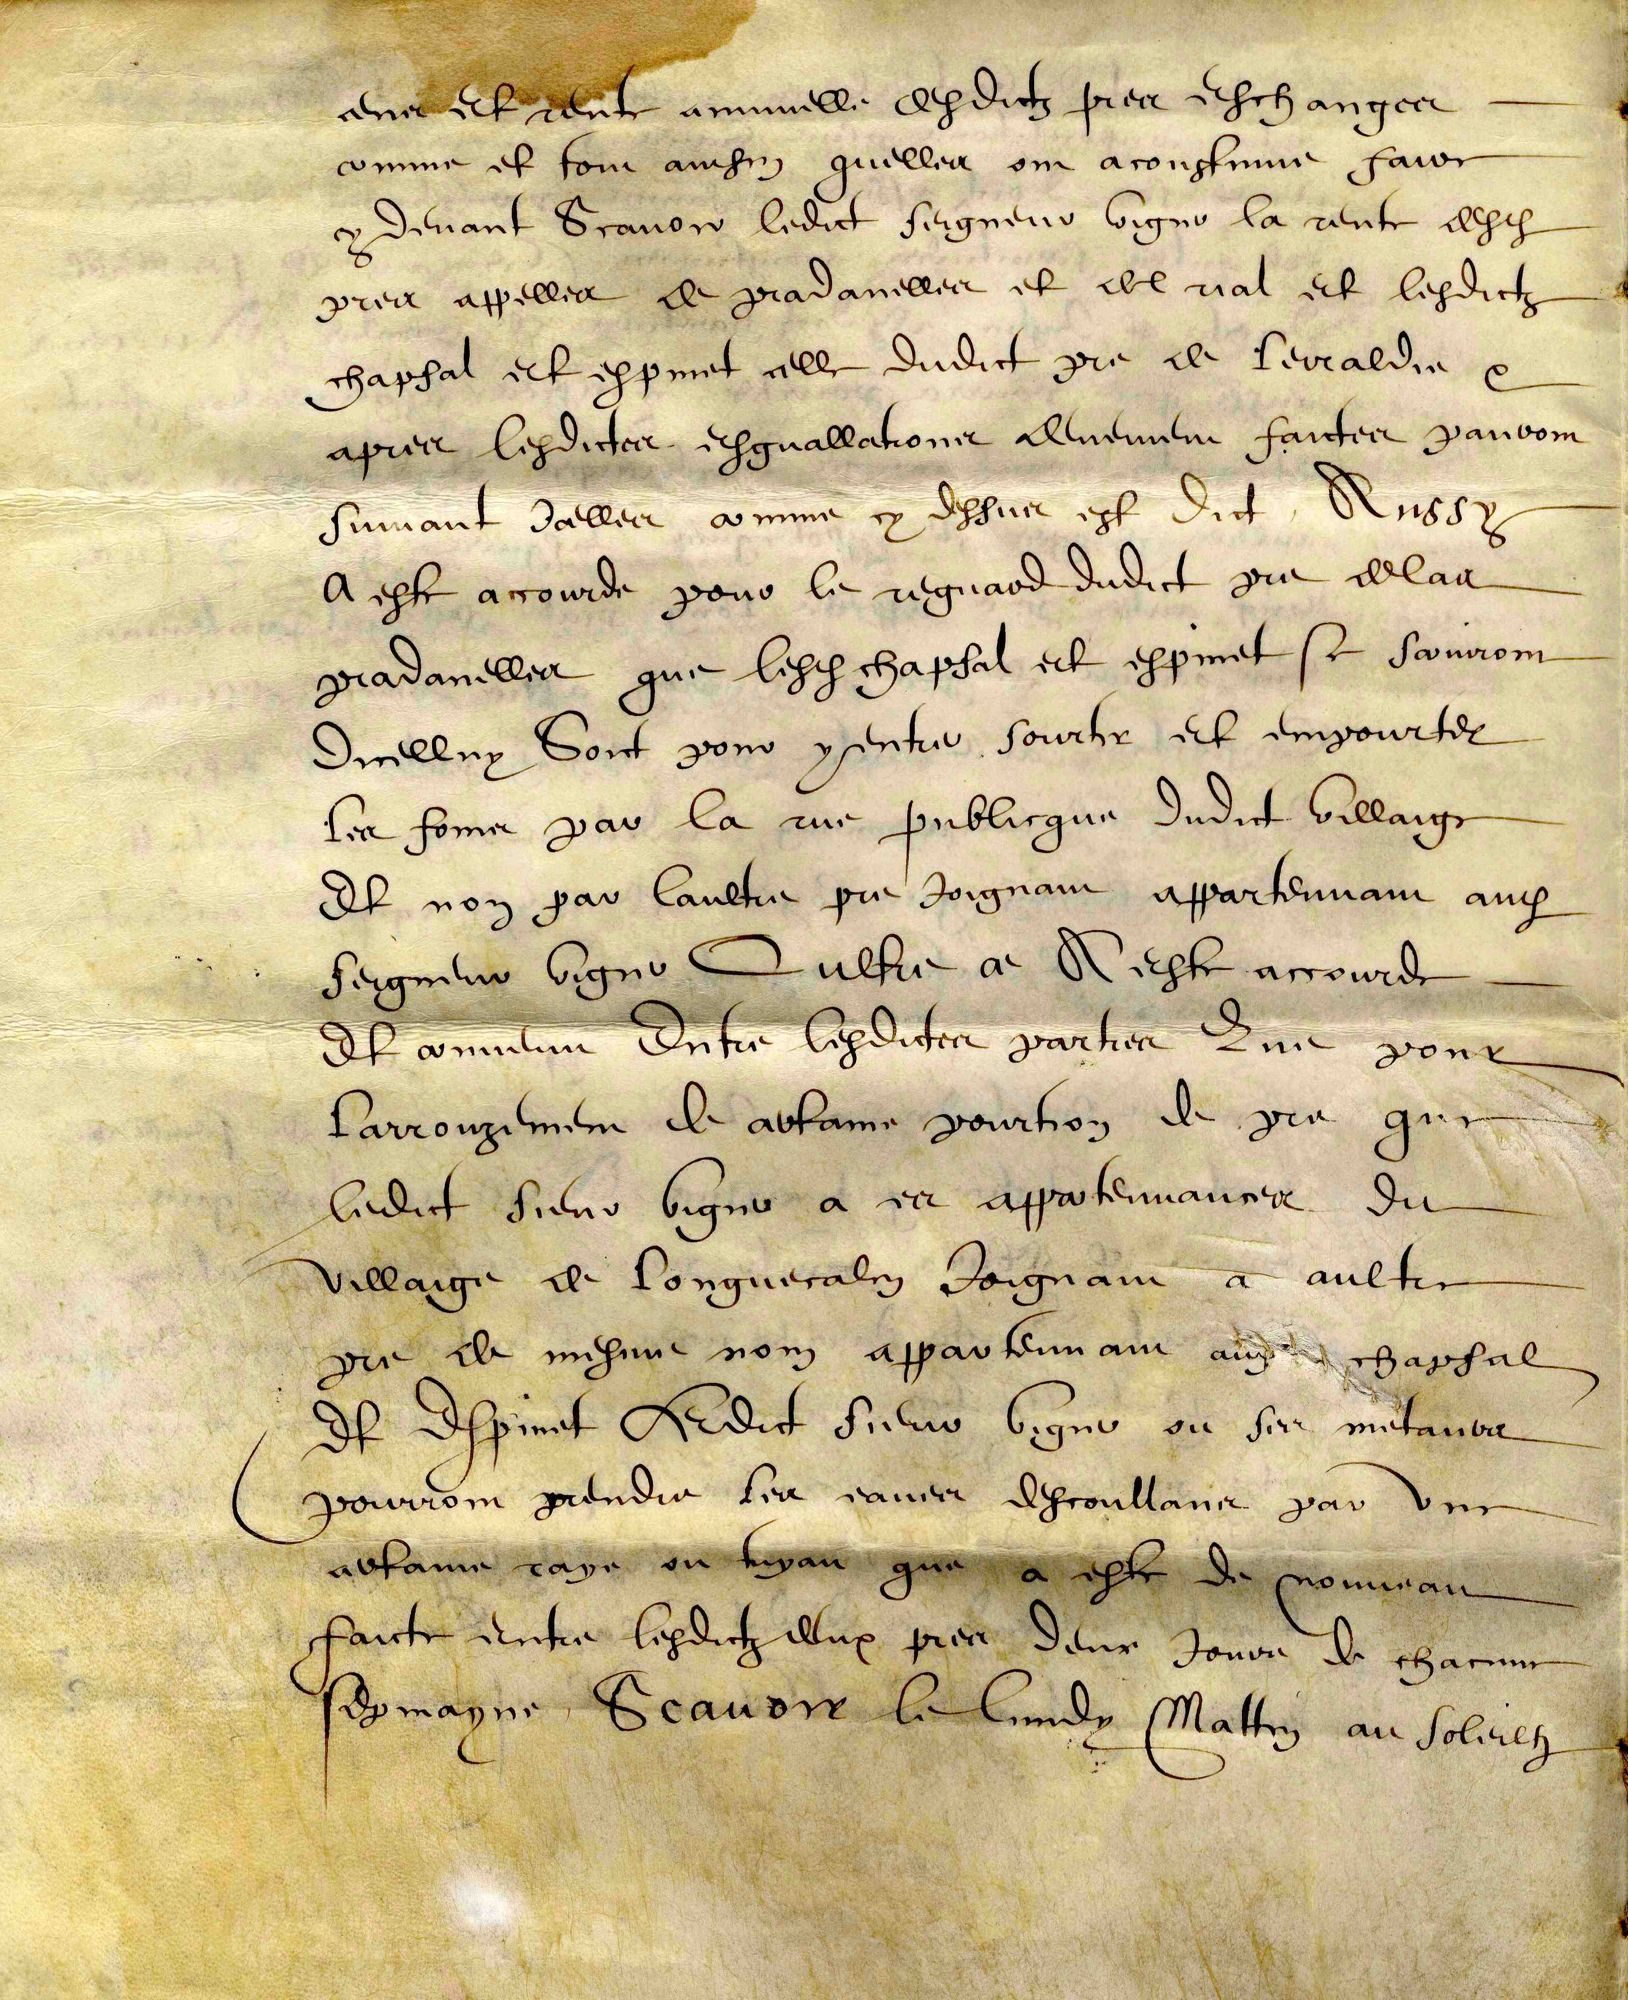 cens et rente annuelle desdictz pres eschanges
comme et tout ainsin quelles ont acoustume faire
cy devant Scavoir ledict seigneur vigier la rente desd
pres appelles de pradanelles et del rial et lesdictz
chapsal et espinet celle dudict pre de Leyraldie
apres lesdictes esguallations deuement faictes
suivant Icelles comme cy dessus est dict Aussy
A este accourde pour le reguard dudict pre de las
pradanelles que lesd chapsal et espinet se serviront
dicelluy Soict pour y entrer sourtir et empourter
Les foins par la rue publicque dudict villaige
Et non par laultre pre Joignant appartennant aud
seigneur vigier Oultre ce A este accourde
Et convenu Entre lesdictes parties Que pour
Larrouzement de certaine pourtion de pre que
ledict sieur vigier a es appartennances du
villaige de Longuecalm Joignant a aultre
pre de mesme nom appartennant aud chapsal
Et Espinet Ledict sieur vigier ou ses metaiers
pourront prendre Les eaues descoullans par une
certaine raze ou tuyau que a este de nouveau
faicte entre lesdictz deux pres deux Jours de chacune
sepmayne Scavoir le lundy Mattin au soleilh